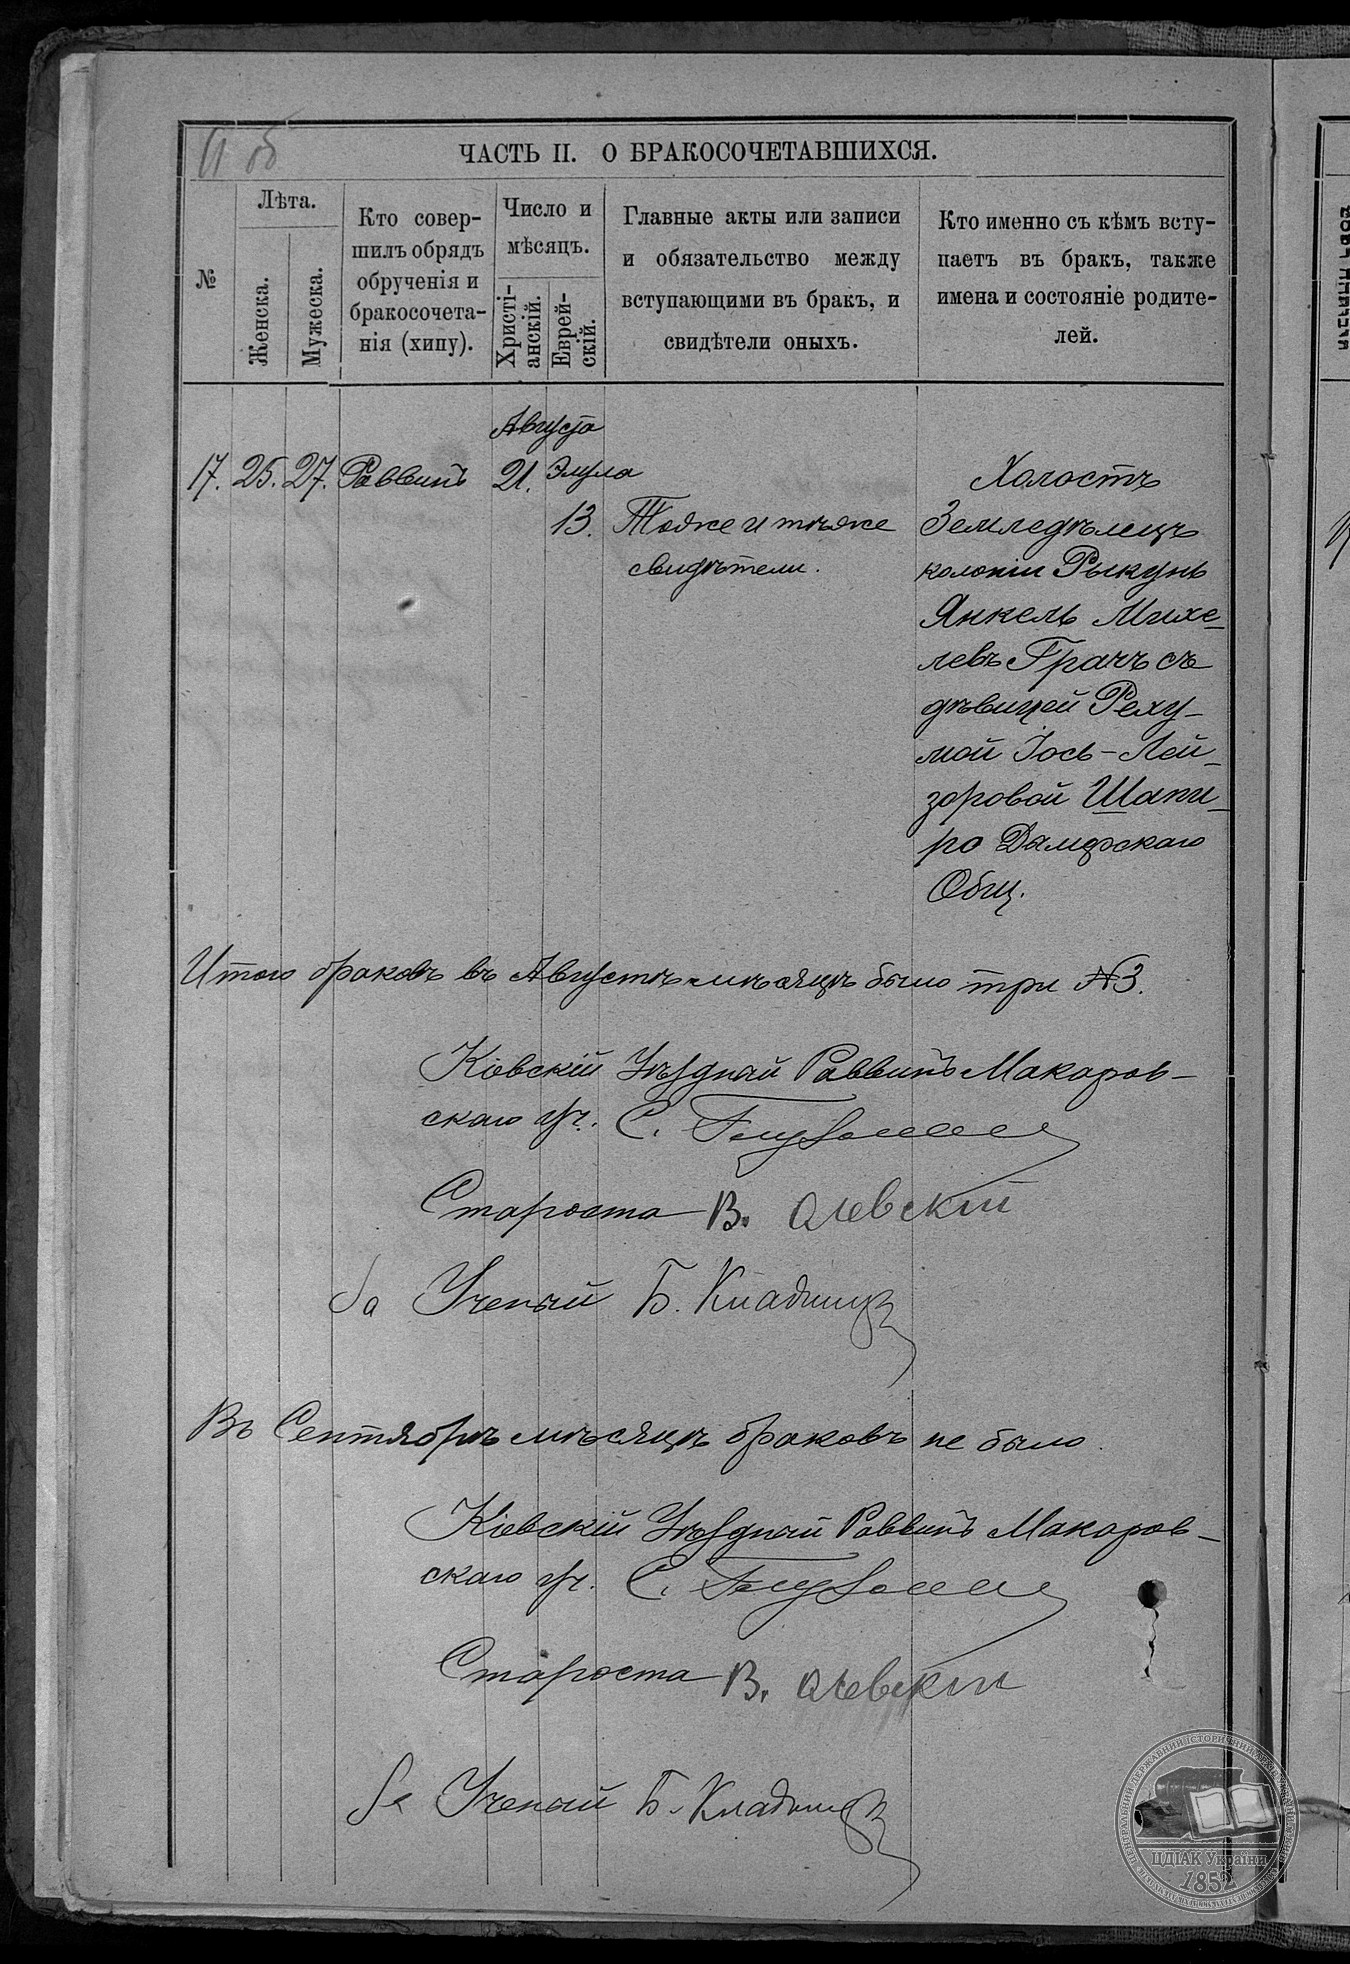 11 об
ЧАСТЬ II. О БРАКОСОЧЕТАВШИХСЯ.
№
Лѣта.
Женска.
Мужеска.
Кто совер-
шилъ обрядъ
обрученія и
бракосочета-
нія (хипу).
Число и
мѣсяцъ.
Христі-
анскій.
Еврей-
скій.
Главные акты или записи
и обязательство между
вступающими въ бракъ, и
свидѣтели оныхъ.
Кто именно съ кѣмъ всту-
паетъ въ бракъ, также
имена и состояніе родите-
лей.
Августа
17. 25. 27. Раввинъ 21. Элула
13.
Тоже и тѣже
свидѣтели.
Холостъ
Земледѣлецъ
колоніи Рыкунь
Янкель Михе-
левъ Грачъ съ
дѣвицей Реху-
мой Іось-Лей-
зоровой Шапи-
ро Дымерскаго
Общ.
Итого браковъ въ Августѣ мѣсяцѣ было три №3.
Кіевскій Уѣздный Раввинъ Макаров-
скаго уч. С.
Староста В. Олевскій
За Ученый Б.
Въ Сентябрѣ мѣсяцѣ браковъ не было.
Кіевскій Уѣздный Раввинъ Макаров-
скаго уч. С.
Староста В. Олевскій
За Ученый Б.
ЦДІАК України
1852